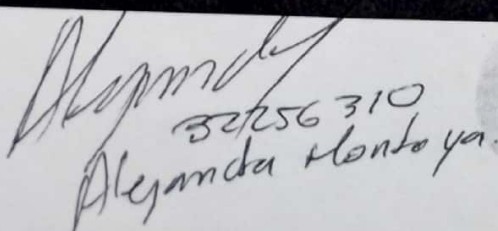 Alejandra
32256310
Alejandra Montoya.